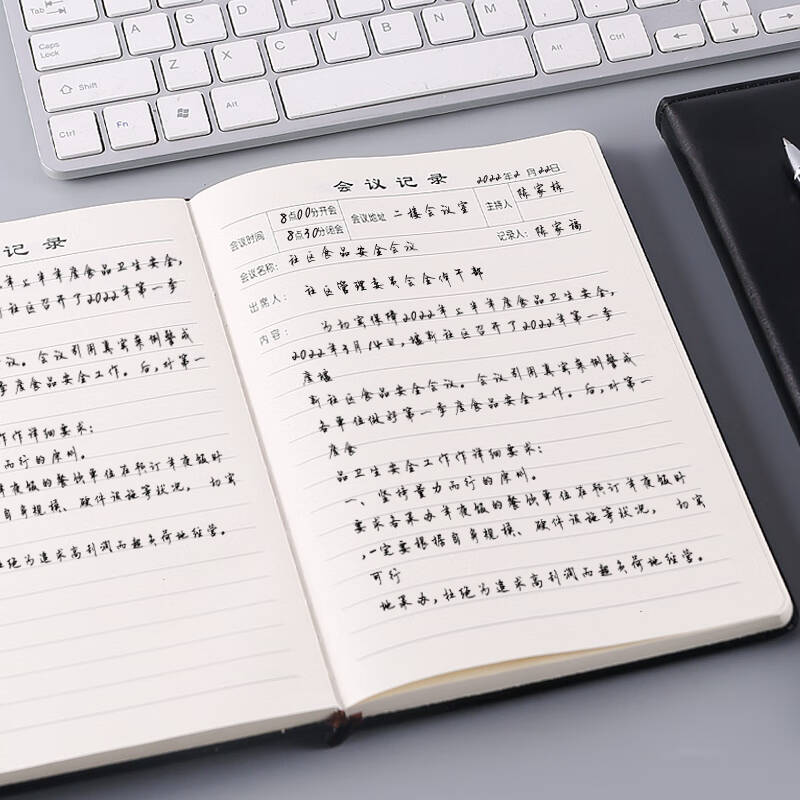 Tab
Caps Lock
A
S
D
F
G
H
J
K
L
Shift
Z
X
C
V
B
N
M
Ctrl
Fn
Alt
Alt
Ctrl
记录
年上半年度食品卫生安全,
社区召开了2022年第一季
议。会议引用真实案例警戒
季度食品安全工作。后,对第一
工作作详细要求:
而行的原则。
年夜饭的餐饮单位在预订年夜饭时
自身规模、硬件设施等状况, 切实
杜绝为追求高利润而超负荷地经营。
会议记录
2022年2月22日
会议时间
8点00分开会
8点30分闭会
会议地址 二楼会议室
主持人 陈家栋
会议名称: 社区食品安全会议
记录人: 陈家福
出席人: 社区管理委员会全体干部
内容: 为切实保障2022年上半年度食品卫生安全,
2022年3月14日,墟新社区召开了2022年第一季
度墟
新社区食品安全会议。会议引用真实案例警戒
各单位做好第一季度食品安全工作。后,对第一
度食
品卫生安全工作作详细要求:
一、坚持量力而行的原则。
要求各承办年夜饭的餐饮单位在预订年夜饭时
,一定要根据自身规模、硬件设施等状况, 切实
可行
地承办,杜绝为追求高利润而超负荷地经营。